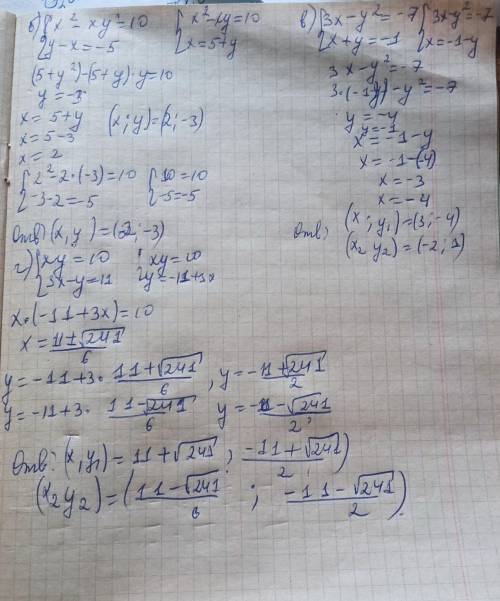 б) { x² - xy² = 10   { x² - xy = 10
{ y - x = -5   { x = 5 + y
(5 + y²) - (5 + y) · y = 10
y = -3
x = 5 + y   (x ; y) = (2 ; -3)
x = 5 - 3
x = 2
{ 2² - 2 · (-3) = 10   { 10 = 10
{ -3 - 2 = -5   { -5 = -5
Отв: (x, y) = (2 ; -3)
в) { 3x - y² = -7   { 3x - y² = -7
{ x + y = -1   { x = -1 - y
3x - y² = -7
3 · (-1 - y) - y² = -7
y = -4
y = 1
x = -1 - y
x = -1 - (-4)
x = -3
x = -4
Отв: (x ; y₁) = (3 ; -4)
(x₂ y₂) = (-2 ; 1)
г) { xy = 10   { xy = 10
{ 3x - y = 11   { y = -11 + 3x
x · (-11 + 3x) = 10
x = 11 ± √241 / 6
y = -11 + 3 · 11 + √241 / 6 , y = -11 + √241 / 2
y = -11 + 3 · 11 - √241 / 6   y = -11 - √241 / 2 ,
Отв: (x, y₁) = 11 + √241 ; -11 + √241 / 2 )
(x₂ y₂) = ( 11 - √241 / 6 ; -11 - √241 / 2 ) .